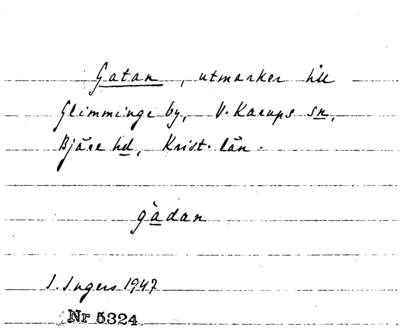 Gatan, utmarker till
Glimminge by, V. Karups sn,
Bjäre hd, Krist. län.
gàdan
I. Ingers 1947
Nr 5324